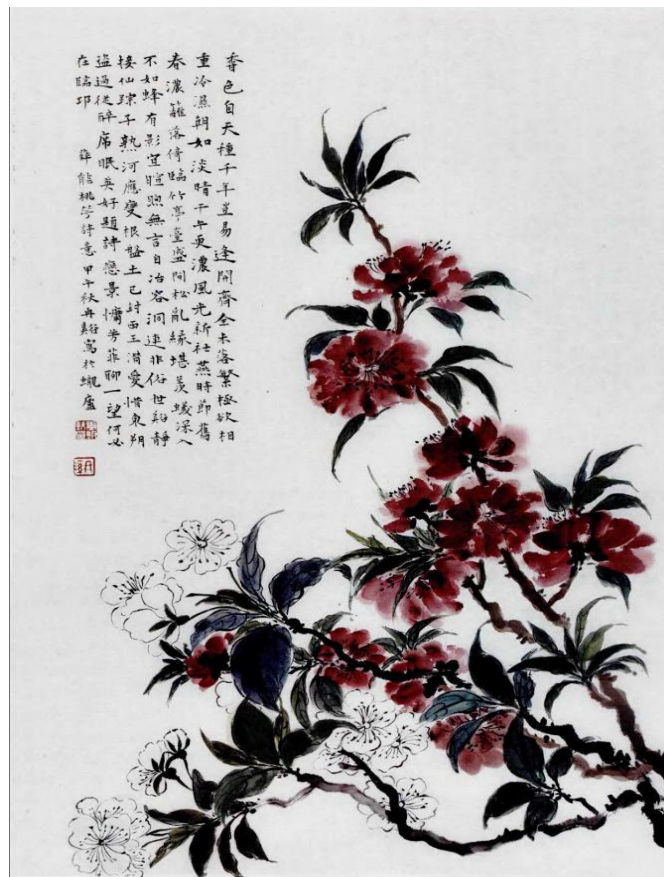 香色自天種千年豈易逢開齊全未落繁極欲相
重冷濕朝如淡晴干午更濃風光新社燕時節舊
春濃籬落倚臨竹亭臺盛間松亂緣堪羨蟻深入
不如蜂有影宜暄煦無言自冶容洞連非俗世谿靜
接仙蹤子熟河應變根盤土已封西王潛愛惜東朔
盜過從醉席眠英好題詩戀景慵芳菲聊一望何必
在臨邛 薛能桃花詩意 甲午秋冉谿寫於廬